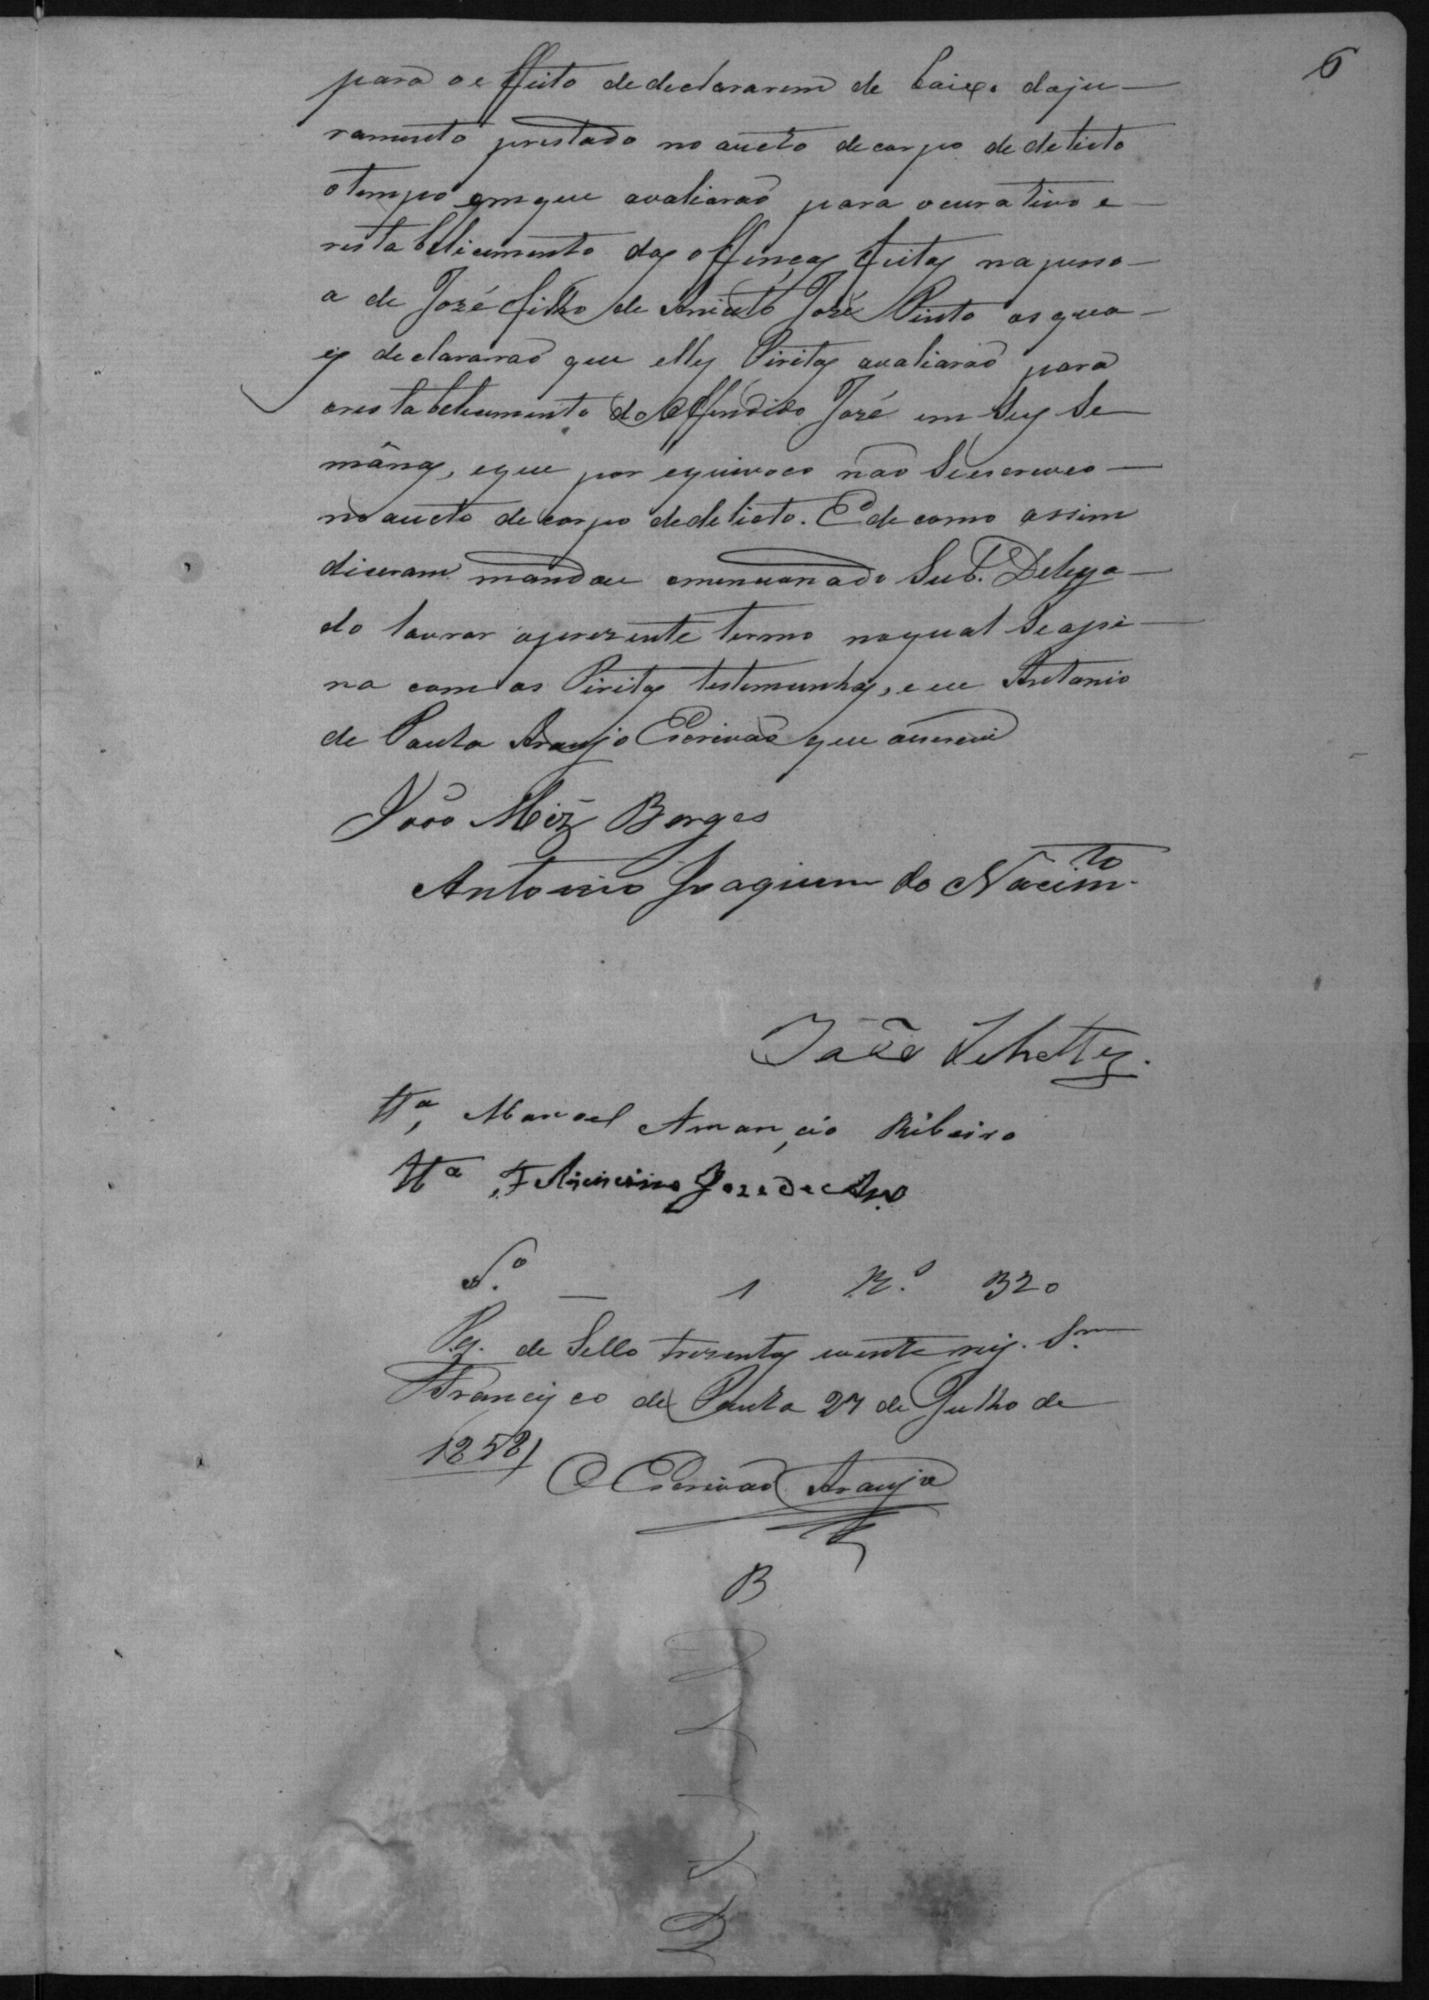 6
para o effeito dedeclararem de baixo doju-
ramento prestado no aucto decorpo dedelicto
otempo emque avaliarão para ocurativo e
restabellicimento das offenças feitas napesso-
a de José filho de Aniceto José Pinto os qua-
is declararão que elles Piritos avaliarão para
orestabelecimento do Offendido José em seis Se
mânas, eque por equivoco não Seescreveo
no aucto decorpo dedelicto. E de como assim
diceram mandou omencionado Sub. Delega-
do lavrar oprezente termo noqual Seassi-
na com os Piritos testemunhas, e eu Antonio
de Paula Araujo Escrivão que escrevi
João Miz Borges
Antonio Joaquim do Nacimto
João
tta, Manoel Amancio Ribeiro
tta, Feliciano Joze de
N.o — 1 R.s 320
Pg. de Sello trezentos evente reis. Sm
Francisco de Paula 27 de Julho de
1858
O Escrivão Araujo
B